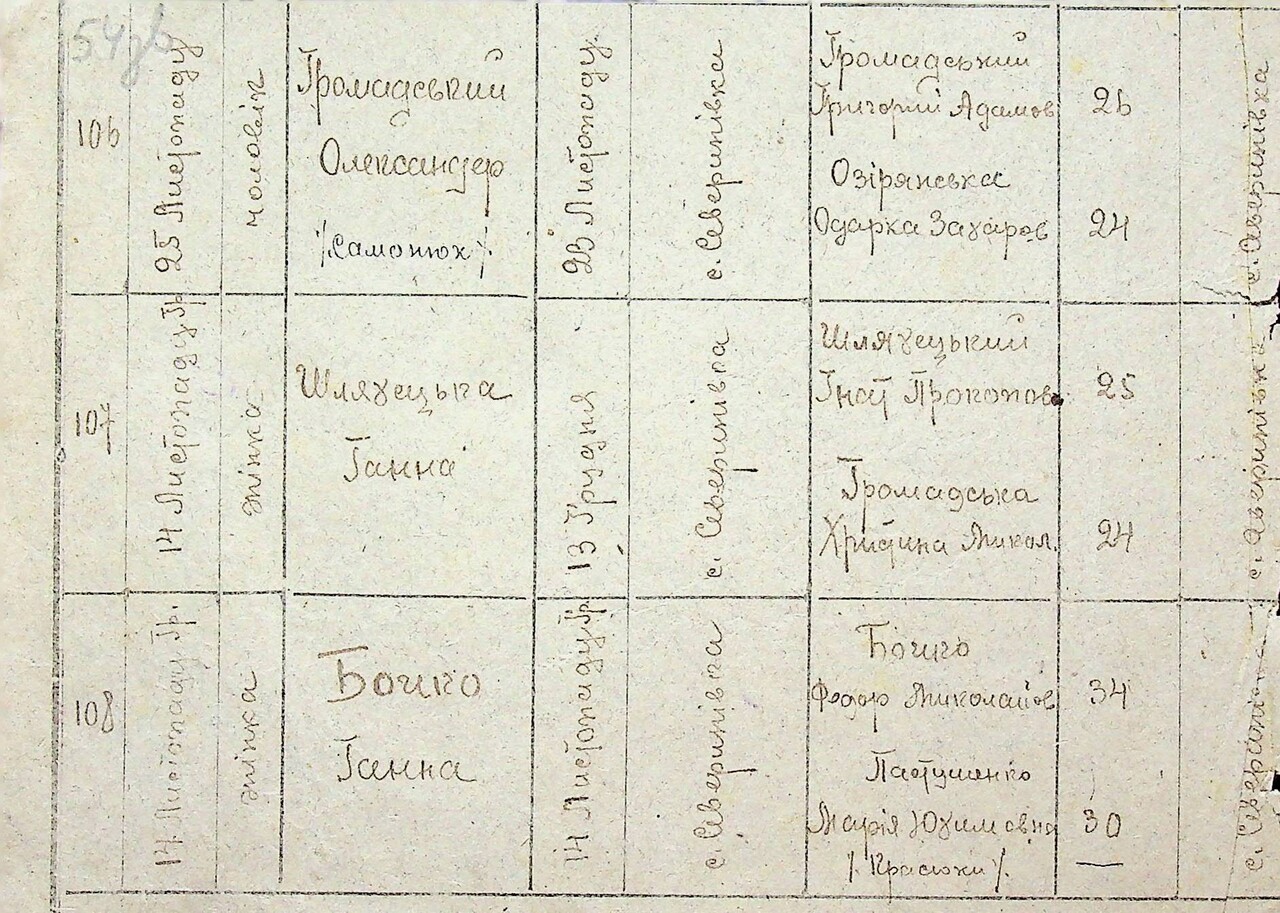 106
25 Листопаду
чоловік
Громадський
Олександер
/Самонюк/.
23 Листопаду.
с. Северинівка
Громадський
Григорій Адамов
26
Озірянська
Одарка Захаров
24
с. Северинівка
107
14 Листопаду Гр.
жінка
Шляхецька
Ганна
13 Грудня
с. Северинівка
Шляхецький
Гнат Прокопов.
25
Громадська
Христина Микол.
24
с. Северинівка
108
14 Листопаду Гр.
жінка
Бойко
Ганна
14 Листопаду Гр.
с. Северинівка
Бойко
Федор Миколайов
34
Пастушенко
Марія Юхимовна
30
/.Красюки/.
с. Северинівка